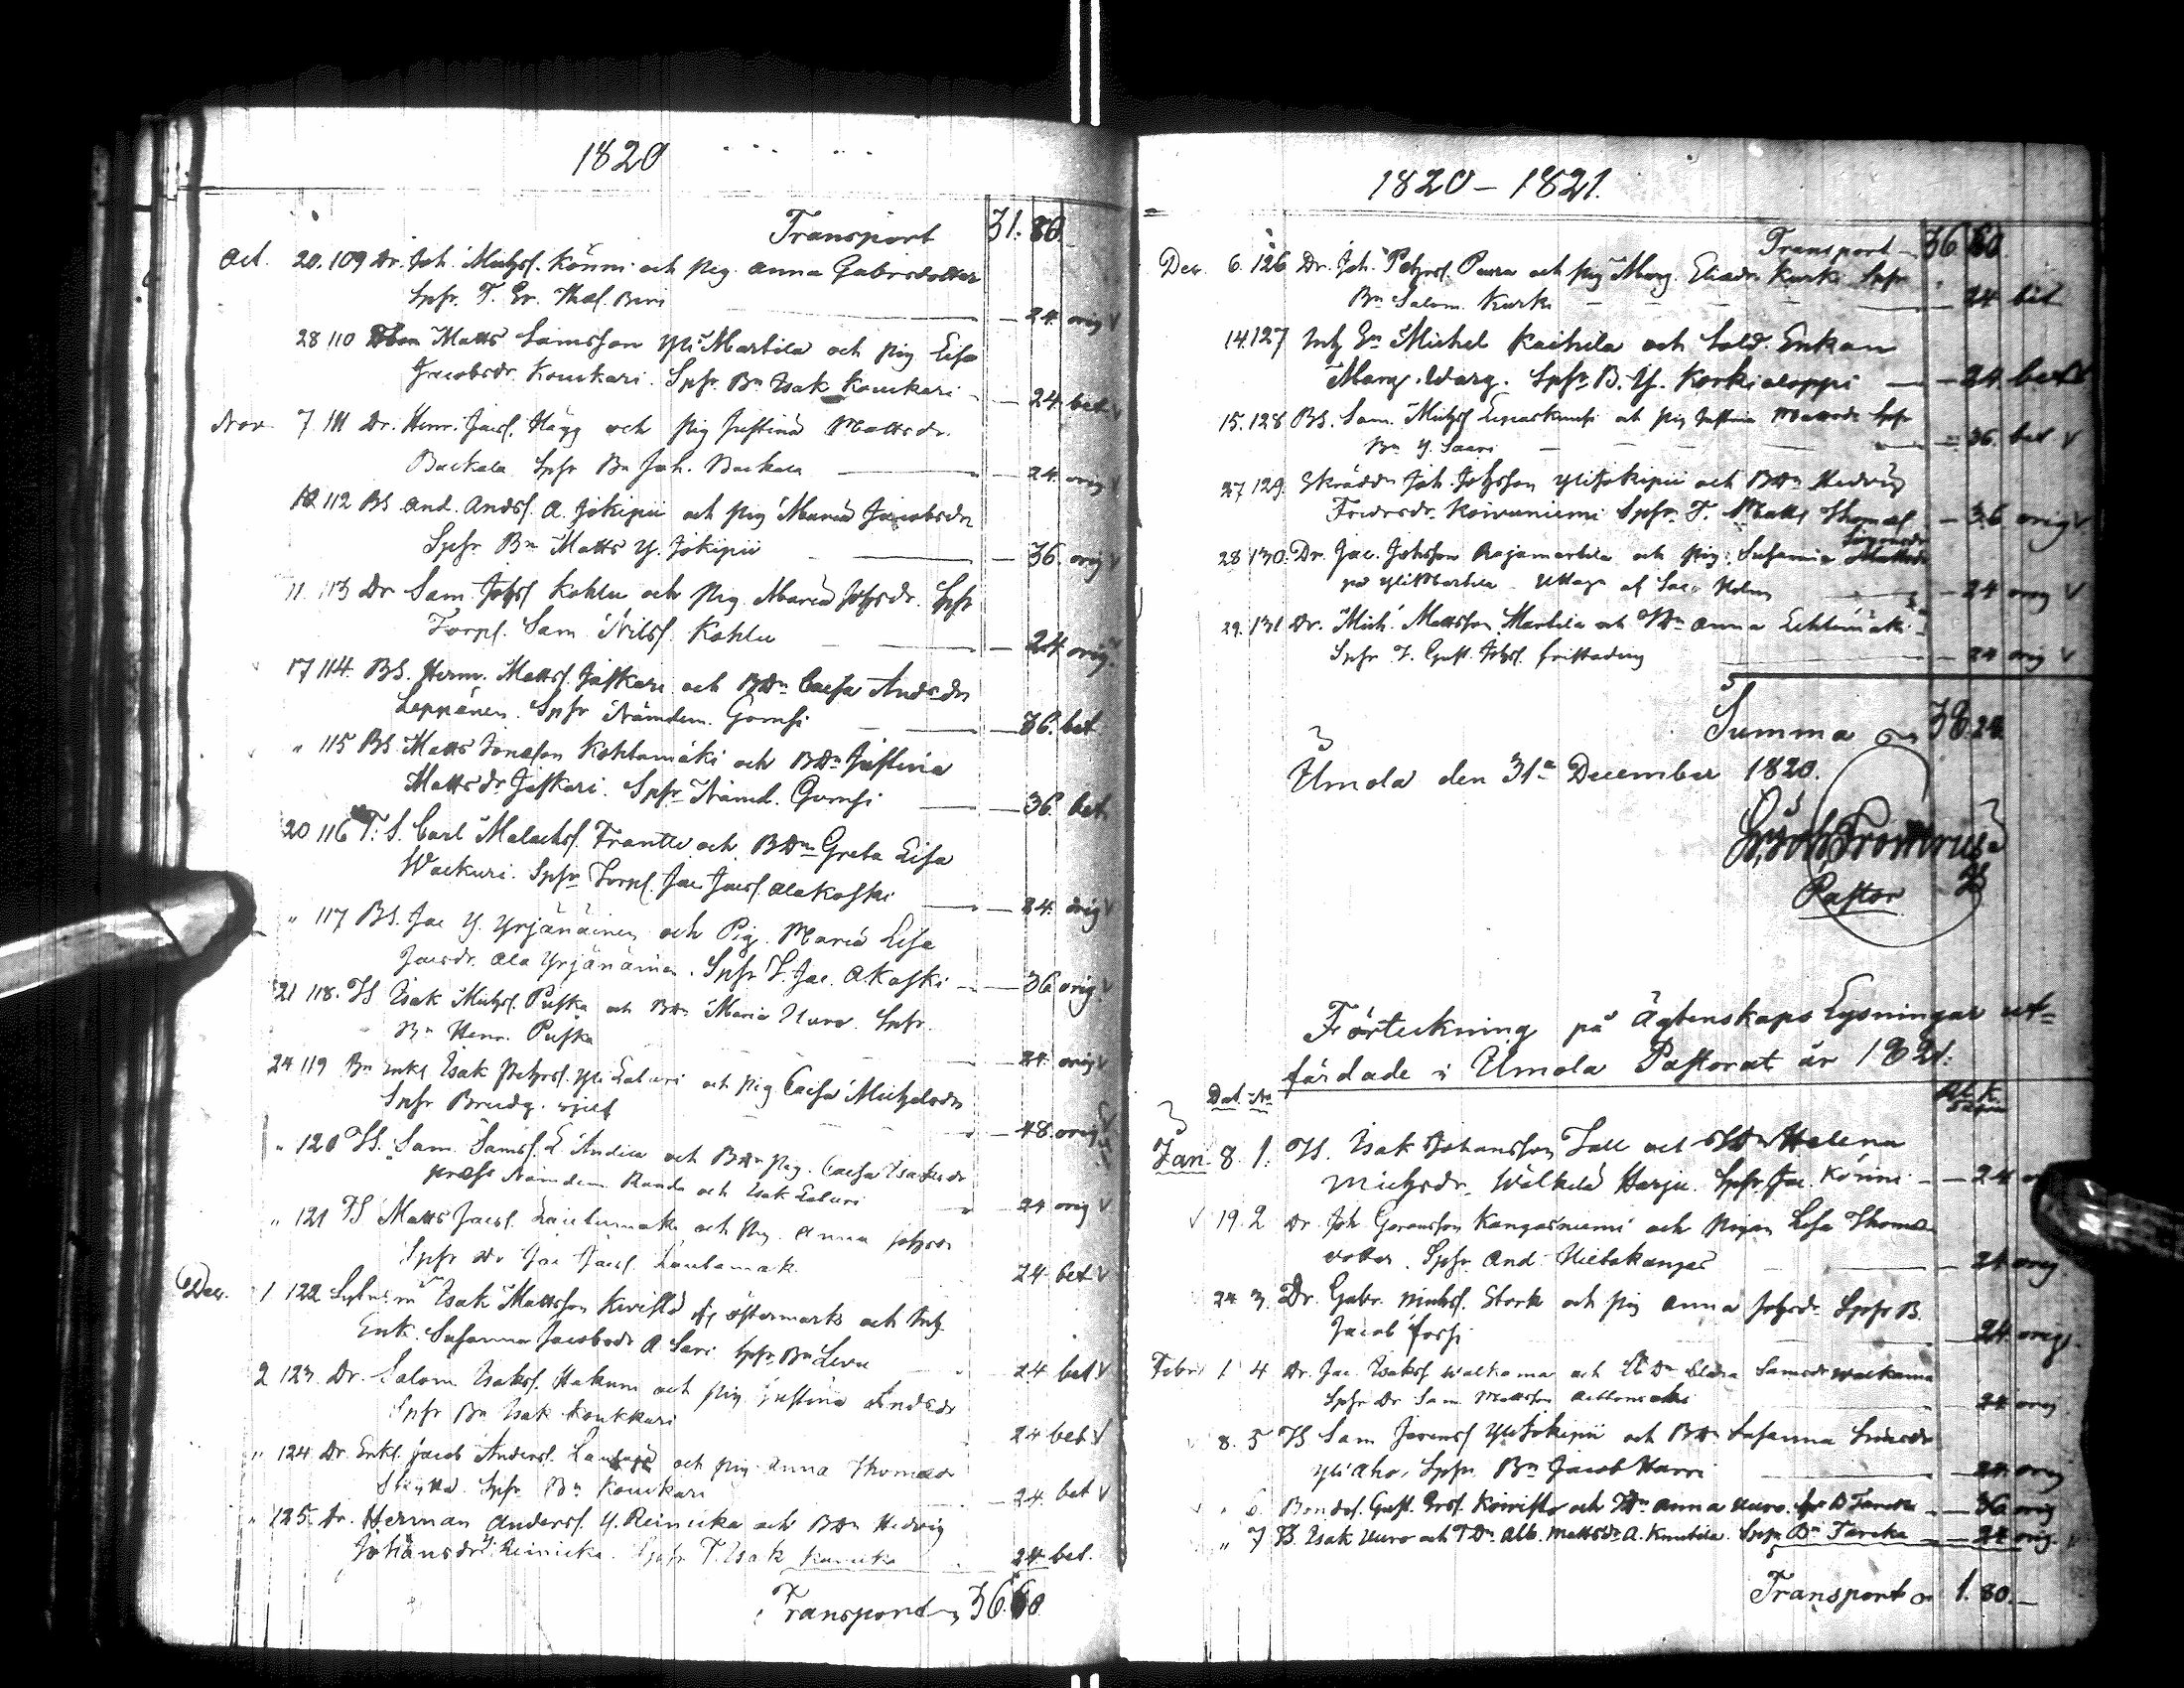 1820
Transport 31. 80.
Oct. 20. 109 Dr. Joh. Michsf. Könni och pig. Anna Gabrsdotter
Spfr. T. Er. Thos.
24. orig
28 110 Matts Samsson Yli Martila och pig Lisa
Jacobsdr. Koukari. Spfr. Bn Isak Koukari
24. bet
Nov. 7 111 Dr. Henr. Jacs. Hägg och pig Justina Mattsdr.
Backala Spfr Bn Joh. Backala
24. orig
10 112 BS And. Andsf. A. Jokipii och pig Maria Jacobsdr
Spfr Bn Matts Y. Jokipii
36. orig
11. 113 Dr Sam. Johsf Kohlu och pig. Maria Johsdr. Spfr
Torp. Sam. Nilsf. Kohlu
24. orig.
17 114. BS. Herm. Mattsf. Jaskari och BDn Caisa Andsdr
Leppänen. Spfr Nämdem. Gomsi
36. bet
" 115 BS. Matts Jonasson Kohtamäki och BDn Justina
Mattsdr Jaskari. Spfr Nämd. Gomsi
36. bet.
20 116 T. S. Carl Malachsf. Frantti och BDn Greta Lisa
Wackuri. Spfr Torp. Jac Jacsf. Alakoski
24. orig
" 117 BS. Jac Y. Yrjänäinen och Pig. Maria Lisa
Jacsdr. Ala Yrjänäinen. Spfr T. Jac. A Koski
36 orig.
21 118. TS Isak Michsf. Puska och BDn Maria Uuro. Spfr.
Bn Henr. Puska
24. orig
24 119 Bn Enkl Isak Petersf. Yli Laluri och pig Caisa Michelsdr
Spfr Brudg. sjelf
48. orig
" 120 TS. Sam. Samsf. L. Andila och BDn pig. Caisa Isaksdr
Nämdem Randa och Isak Laluri
24 orig
" 121 TS Matts Jacsf. och pig. Anna Johsdr
Spfr Dr Jac Jacsf. Lautamäk
24 bet
Dec. 1 122 Isak Mattsson Kivistö af Östermark och Inh.
Enk. Susanna Jacobsdr A Sari Spfr Bn
24 bet
2 123. Dr. Salom. Isaksf. Hakuni och pig Justina Andsdr
Spfr Bn Isak Koukkari
24 bet
" 124 Dr. Enkl. Jacob Andersf. och pig Anna Thomasdr
Spfr Bn Koukari
24. bet
" 125. Dr. Herrman Andersf. Y. Reinicka och BDn Hedvig
Johansdr Y. Reinicka. Spfr T. Isak
24. bet.
Transport 36. 60
1820 – 1821.
Transport 36 60
Dec. 6. 126 Dr. Joh. Petersf. Purra och pig Marg. Eliasdr. Kurki Spfr
Bn Salom. Kurki
24 bet
14. 127 Inh Michel Kaihila och Sold. Enkan
Marg. Warg. Spfr B. Y. Korkialoppi
24. bet
15. 128 BS. Sam. Michsf och pig Justina Mattsdr Spfr
Bn Y. Saari
36. bet
27 129. Skrädd. Joh. Johsson Ylijokipii och BDn Hedvig
Fredrsdr. Koivuniemi Spfr. T. Matts Thomas
36 orig
28 130. Dr. Jac. Johsson Rajamartila och pig: Susanna
på Yli Martila. Uttagn af Holm
24 orig
29. 131 Dr. Mich. Mattsson Martila och TDn Anna Lehtimäki
Spfr T. Gust. Johsf.
24 orig
Summa 38. 24.
Ilmola den 31a December 1820.
Pastor
Förteckning på Ägtenskaps Lysningar ut=
färdade i Ilmola Pastorat år 1821.
Dat. No
Jan. 8. 1. TS. Isak Johansson Tall och TDn Helena
Michsdr. Wälkilä Harju. Spfr Jac. Könni
24
19. 2 Dr Joh Göransson Kangasniemi och pigan Lisa Thomas
dotter. Spfr And. Hietakangas
24 orig
24 3. Dr. Gabr. Michsf. Stork och pig Anna Johsdr. Spfr B.
Jacob Jossi
24. orig.
Febr. 1 4 Dr. Jac. Isaksf Walkama och Clara Samsdr Walkama
Spfr Dr Sam Mattsson
24 orig
8. 5 TS Sam Ylijokipii och BDn Susanna
Yliaho, Spfr Bn Jacob Harri
24. orig
" 6. Bondes. Gust. Ersf. Koivisto och TDn Anna Uuro. Spfr B Tarcka
36 orig
" 7 TS. Isak Uuro och TDn Alb. Mattsdr A. Knutila. Spfr Bn Tarcka
24 orig.
Transport 1. 80.